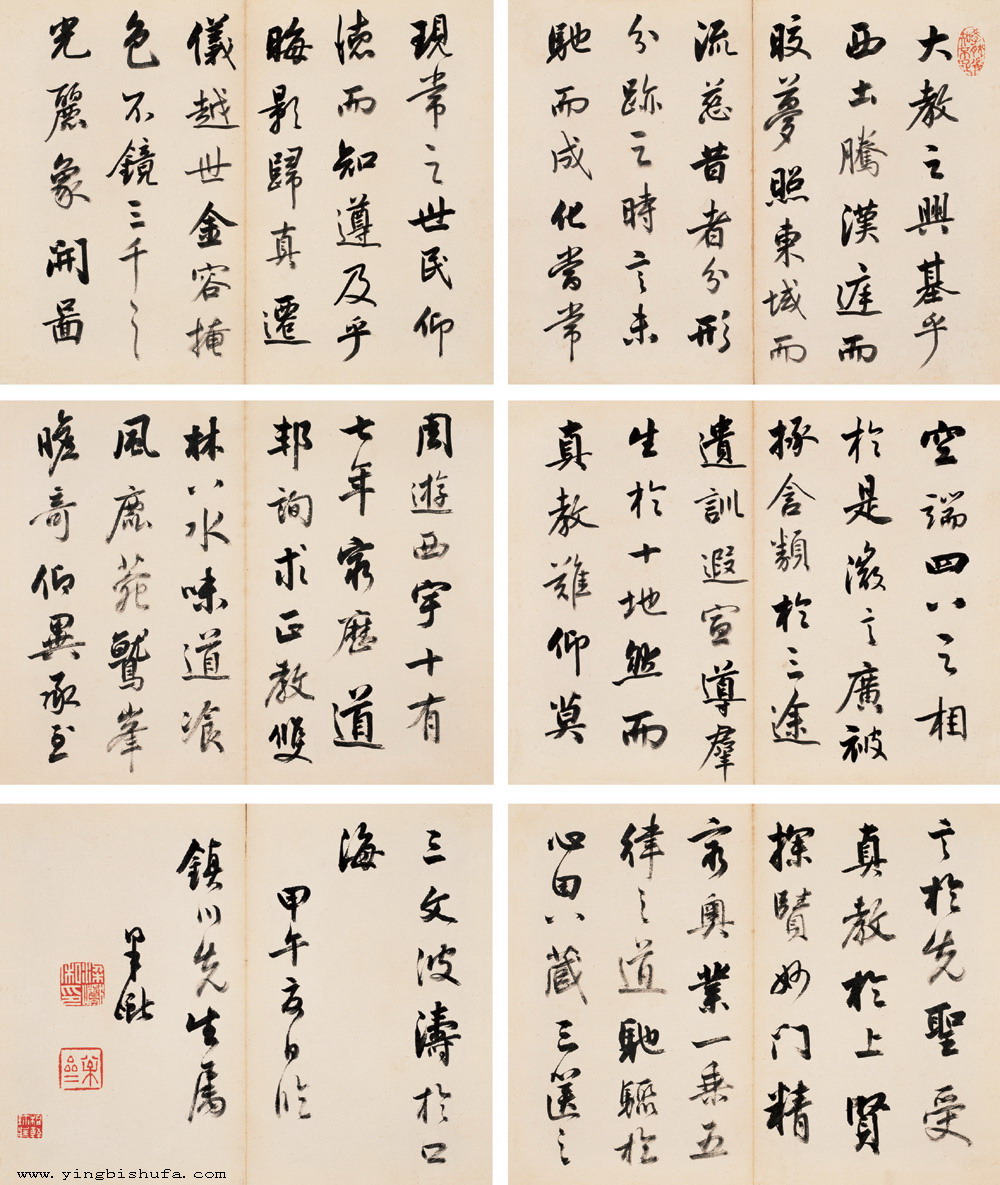 大教之興基乎
西土騰漢庭而
皎夢照東域而
流慈昔者分形
分跡之時言未
馳而成化當常
現常之世民仰
德而知遵及乎
晦影歸真遷
儀越世金容掩
色不鏡三千之
光麗象開圖
空端四八之相
於是微言廣被
拯含類於三途
遺訓遐宣導羣
生於十地然而
真教難仰莫
周遊西宇十有
七年窮歷道
邦詢求正教雙
林八水味道飡
風鹿菀鷲峯
瞻奇仰異承至
言於先聖受
真教於上賢
探賾妙門精
窮奧業一乘五
律之道馳驟於
心田八藏三篋之
三文波濤於口
海
甲午夏日臨
鎮川先生屬
www.yingbishufa.com